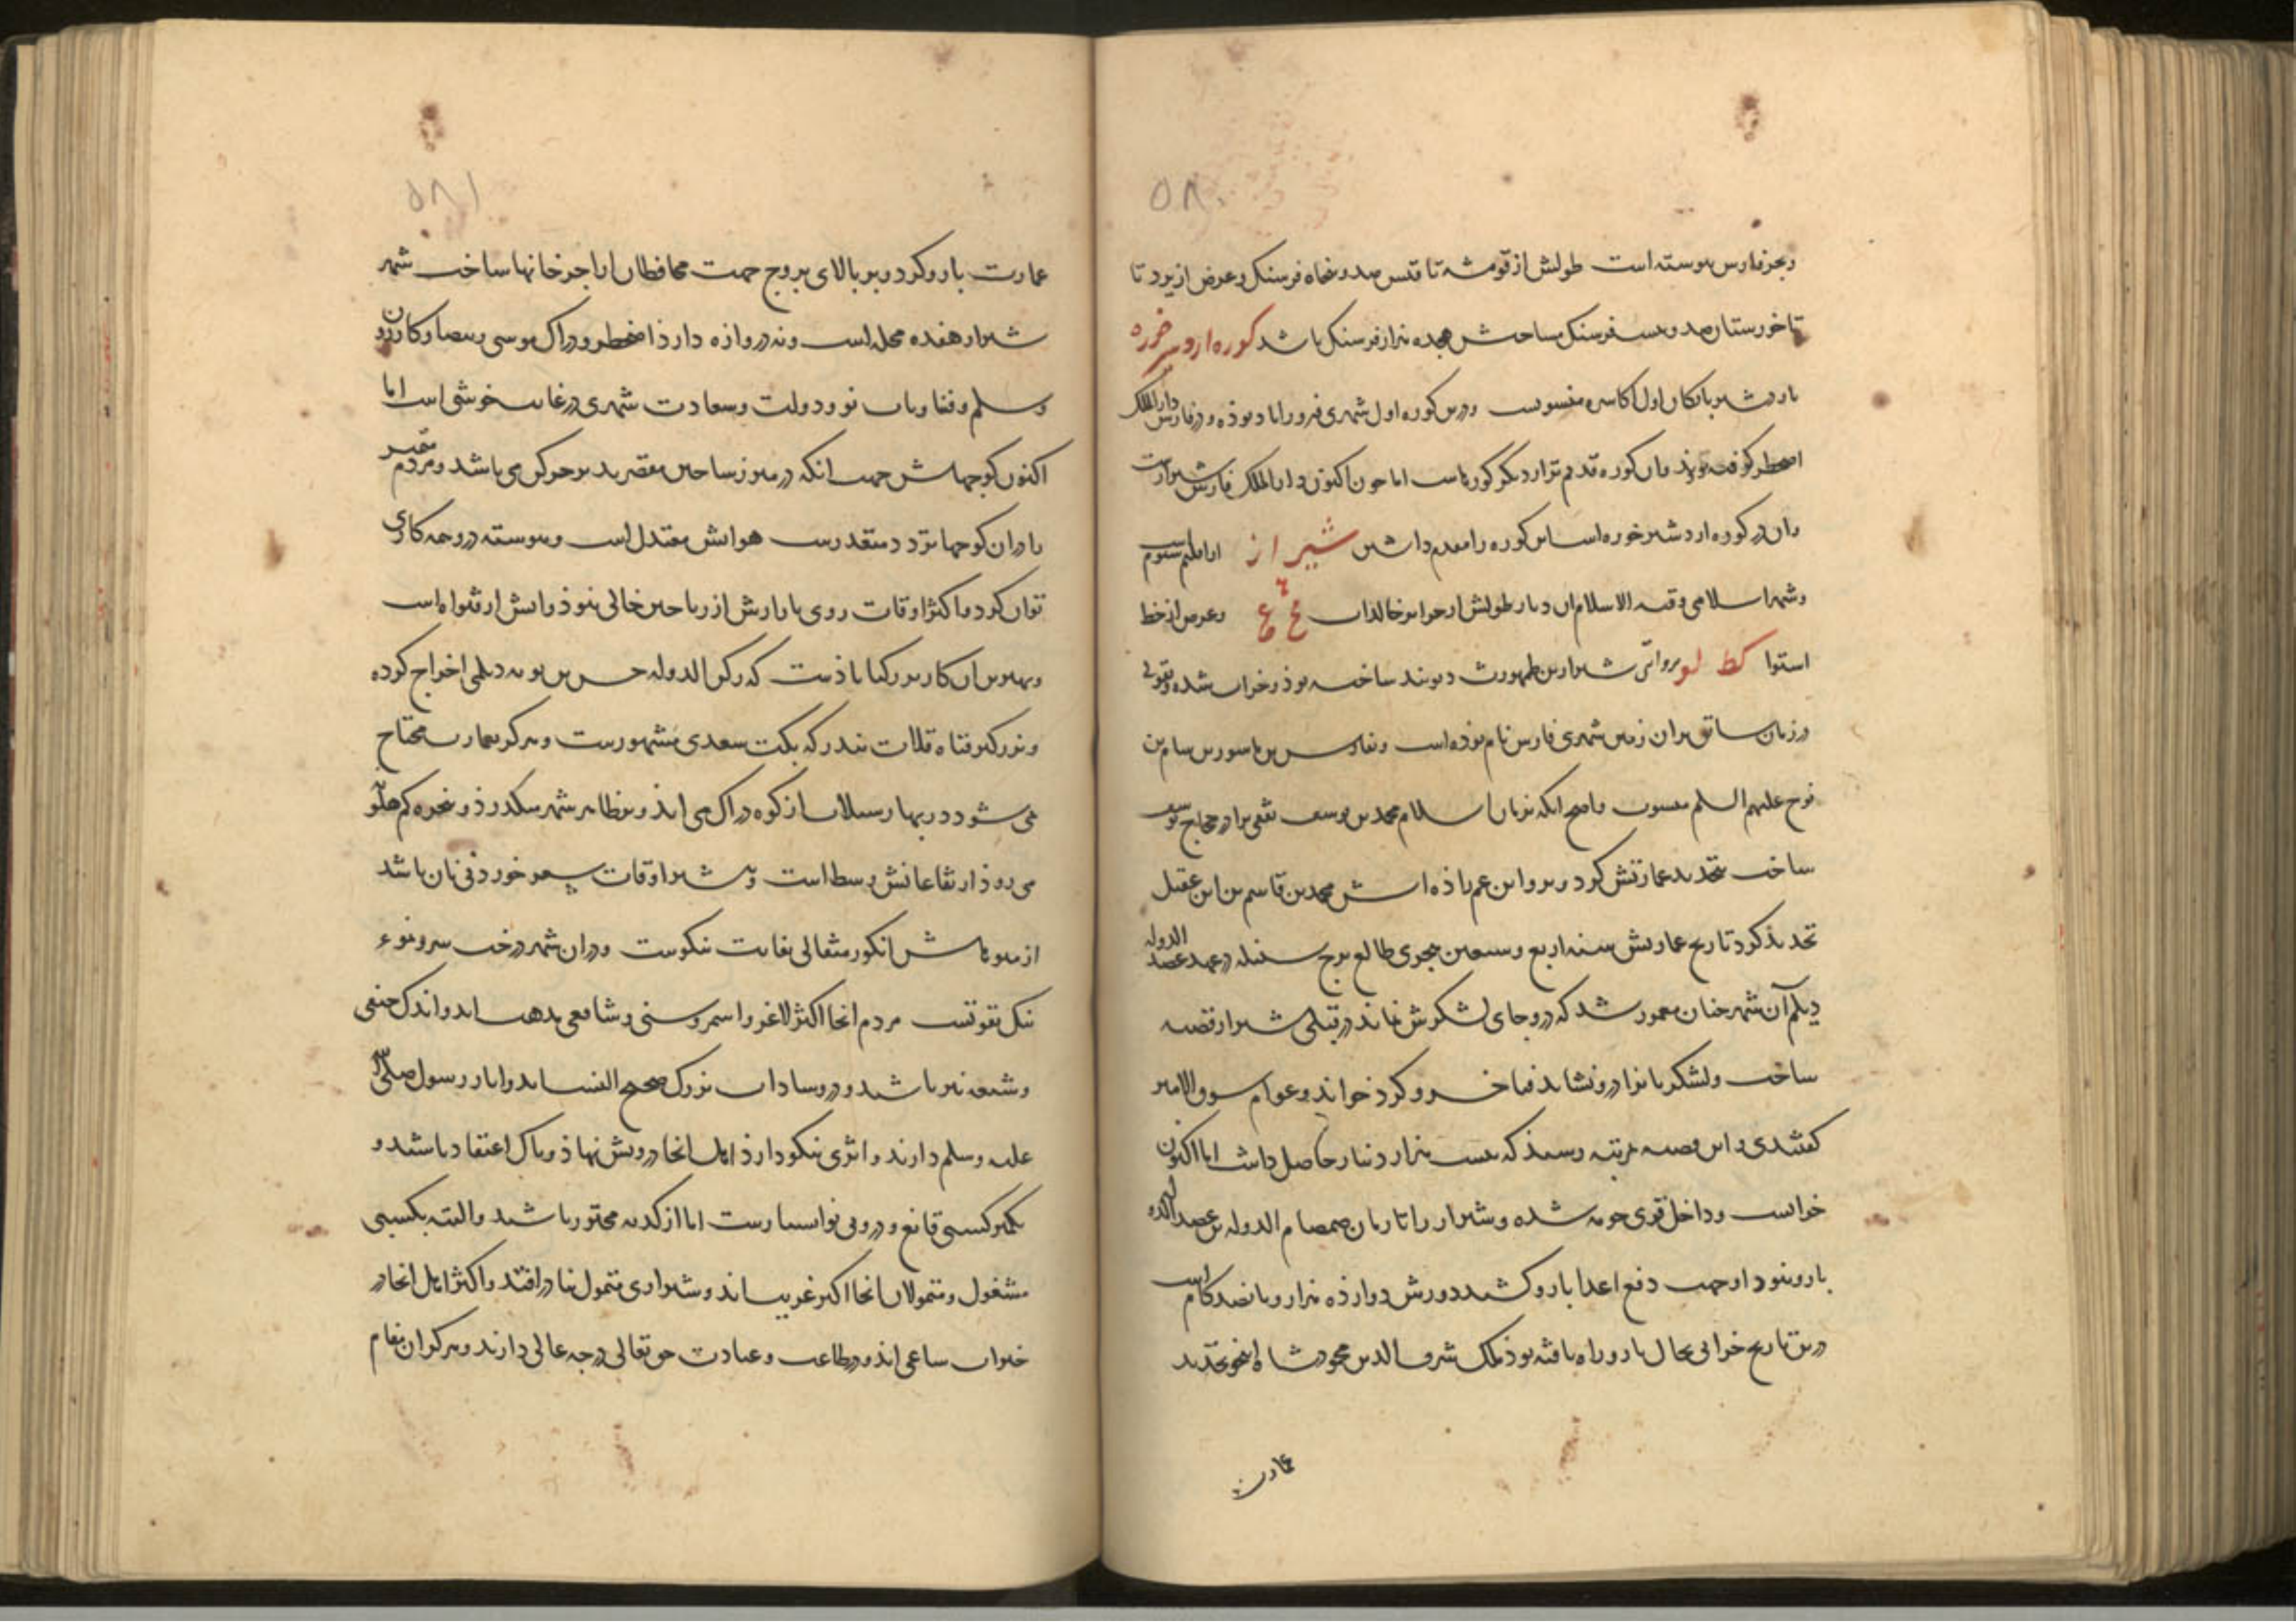 ۵۸۰
و بحر فارس پیوسته است طولش از قومشه تا قیس صد و پنجاه فرسنک و عرض از یزد تا
تا خوزستان صد و بیست فرسنک مساحتش هجده هزار فرسنک باشد کوره اردشیر خوره
باردشیر بابکان اول اکاسره منسوبست و درین کوره اول شهری فیروزاباد بوذه و در فارس دار الملک
اصطخر گرفته بوذند و آن کوره قدیم تر از دیگر کورهاست اما چون اکنون دار الملک فارس شیرازست
و آن در کوره اردشیر خوره است این کوره را مقدم داشتن شیراز از اقلیم سیوم است
و شهر اسلامی و قبه الاسلام آن دیار طولش از جزایر خالدات فح ع و عرض از خط
استوا کط لو بروایتی شیراز بن طهمورث دیوبند ساخته بوذ و خراب شده و بقولی
در زمان سابق بران زمین شهری فارس نام بوذه است و بفارس بن ماسور بن سام بن
نوح علیهم السلم منسوب و اصح آنکه بزمان اسلام محمد بن یوسف ثقفی برادر حجاج یوسف
ساخت تجدید عمارتش کرد و بروایتی عم زاذه اش محمد بن قاسم بن ابی عقیل
تجدید کرد تاریخ عمارتش سنه اربع و سبعین هجری طالع برج سنبله در عهد عضد الدوله
دیلم آن شهر چنان معمور شد که درو جای لشکرش نماند در قبلی شیراز قصبه
ساخت و لشکریانرا درو نشاند فنا خسرو کرد خواندند و عوام سوق الامیر
کفتندی و این قصبه بمرتبه رسید که بیست هزار دینار حاصل داشت اما اکنون
خرابست و داخل قری حومه شده و شیراز را تا زمان صمصام الدوله بن عضد الدوله
بارو نبود او جهت دفع اعدا بارو کشید دورش دوازده هزار و پانصد کام است
درین تاریخ خرابی بحال بارو راه یافته بوذ ملک شرف الدین محمود شاه اینجو تجدید
عمارت
۵۸۱
عمارت بارو کرد و بر بالای بروج جهت محافظان از آجر خانها ساخت شهر
شیراز هفده محله است و نه دروازه دارذ اصطخر و دراک موسی و بیضا و کازرون
و سلم و فنا و باب نو و دولت و سعادت شهری در غایت خوشی است اما
اکنون کوچهاش جهت آنکه در مبرز ساختن مقصرند پر چرکین می باشد و مردم متمیز
را در ان کوچها تردد متعذرست هوایش معتدل است و پیوسته درو همه کاری
توان کرد و اکثر اوقات روی بازارش از ریاحین خالی نبوذ و آبش از قنوات است
و بهترین آن کاریز رکناباذست که رکن الدوله حسن بن بویه دیلمی اخراج کرده
و بزرکتر قناة قلات بندر که بکت سعدی مشهورست و هرکز بعمارت محتاج
نمی شود در بهار سیلاب از کوه دراک می آید و بر ظاهر شهر میکذرذ و ببحره ماهلو
می روذ ارتفاعاتش وسط است و بیشتر اوقات تسعیر خوردنی نان باشد
از میوهاش انکور مثقالی بغایت نیکوست و در ان شهر درخت سرو نوع
نیک بقوتست مردم انجا اکثر لاغر و اسمر و سنی و شافعی مذهب اند و اندک حنفی
و شیعه نیز باشند و درو سادات بزرک صحیح النسب اند و آثار رسول صلی الله
علیه و سلم دارند و اثری نیکو دارذ اهل انجا درویش نهاذ و پاک اعتقاد باشند و
بکمتر کسبی قانع و درو بی نوا بسیارست اما از کدیه محترز باشند و البته بکسبی
مشغول و متمولان آنجا اکثر غریب اند و شیرازی متمول نادر افتد و اکثر اهل انجا در
خیرات ساعی اند و در طاعت و عبادت حق تعالی درجه عالی دارند و هرکز ان مقام